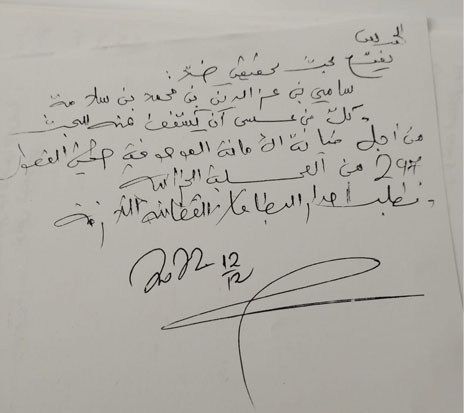 الحمد لله
يفتح بحث تحقيقي ضد:
سامي بن عز الدين بن محمد بن سلامة
كل من عسى أن يكشف عنه البحث
من أجل خيانة الأمانة الموصوفة طبق الفصول
297 من المجلة الجزائية
نطلب إصدار البطاقات القضائية اللازمة
12
12